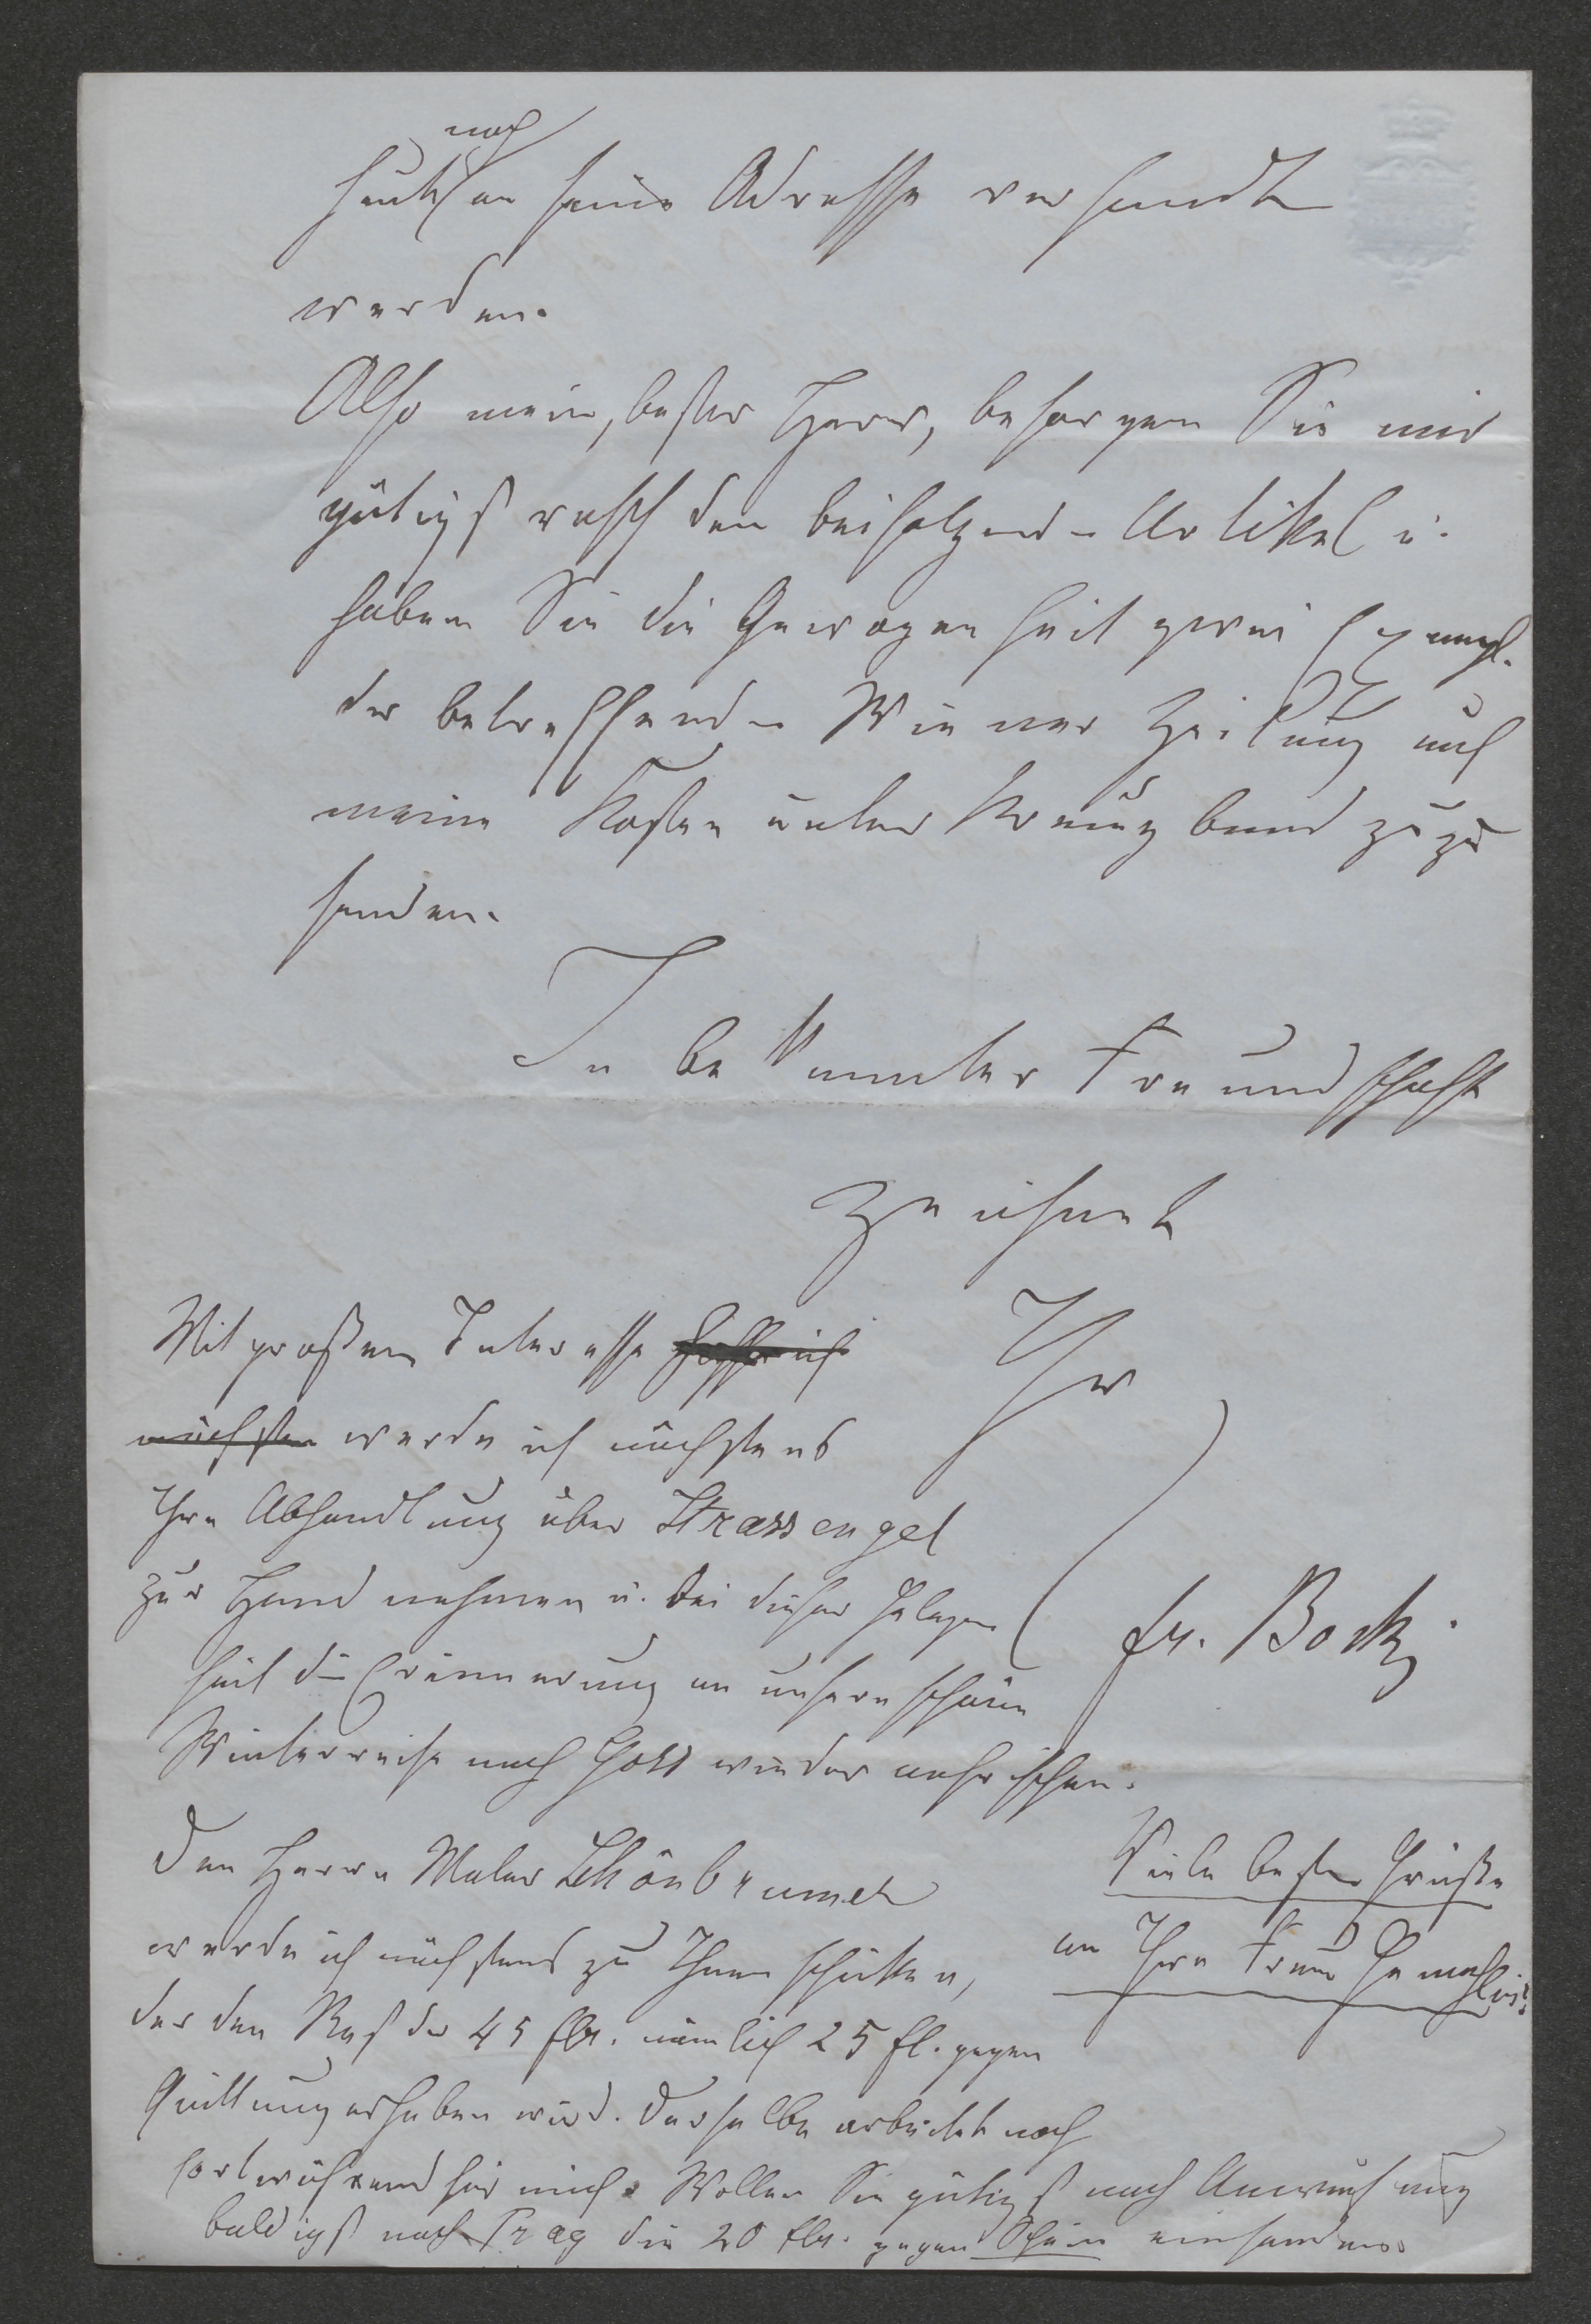 noch
heute an seine Adresse versandt
werden.
Also mein, bester Herr, besorgen Sie mir
gütigst rasch den beifolgenden Artikel u.
haben Sie die Gewogenheit zwei Exempl.
der betreffenden Wiener Zeitung auf
meine Kosten unter Kreuzband zuzu
senden.
In bekannter Freundschaft
zeichnet
Ihr
fr. Bock
Mit großem Interesse
nächsten werde ich nächstens
Ihre Abhandlung über Strassengel
zur Hand nehmen u. bei dieser Gelegen
heit die Erinnerung an unsere schöne
Winterreise nach wieder auffrischen.
Den Herrn Maler Schönbrunner
werde ich nächstens zu Ihnen schicken,
der den Rest der 45 flr. nämlich 25 fl. gegen
Quittung erheben wird. Derselbe arbeitet noch
fortwährend für mich. Wollen Sie gütigst nach Anweisung
baldigst nach Prag die 20 flr. gegen Schein einsenden.
Viele beste Grüße
an Ihre Frau Gemahlin!